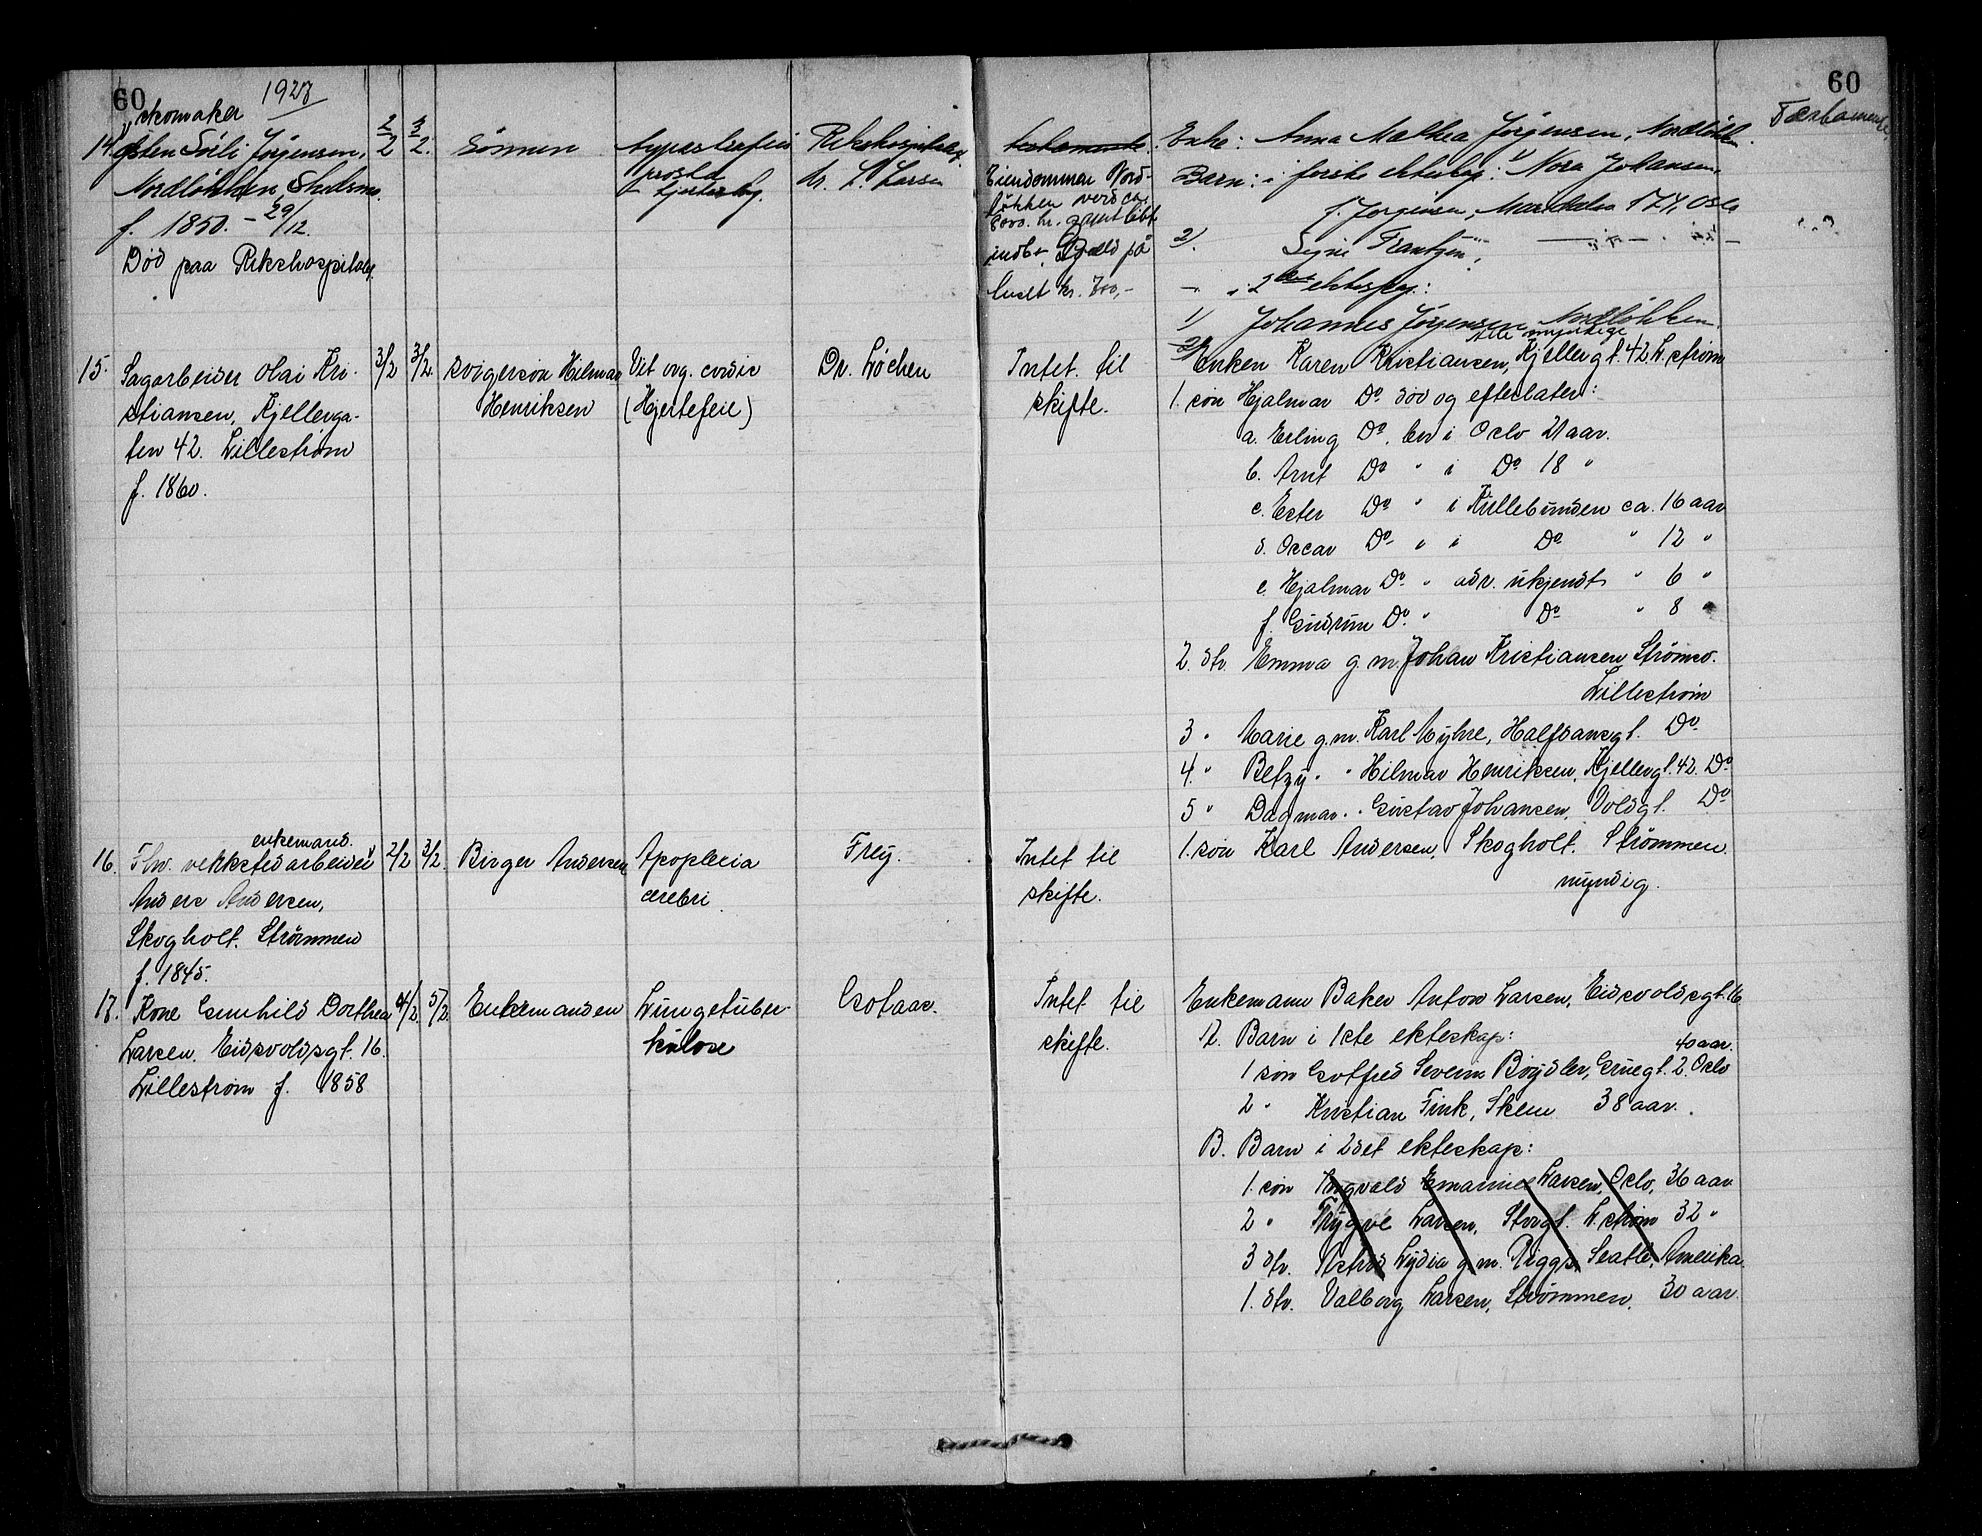 60 1927 60
skomaker Testamente
14. Østen Sørli Jørgensen, 2/2 3/2. Sönnen Hypertrofia Rikshospitalet Enke: Anna Mathea Jørgensen, Nordløkken
Nordløkken Skedsmo. prosta dr. L. Larsen Eiendommen Nord- Barn: i første ekteskap: 1) Nora Johansen,
f. 1850. - 29/12. løkken verd ca. f. Jørgensen, Oslo
Død paa Rikshospitalet 8000 kr. samt litt 2) Signe
indbo. Gjæld på - i 2det ekteskap:
huset kr. 700,- 1) Johannes Jørgensen Nordløkken.
Alle myndige
15. Sagarbeider Olai Kri- 3/2 3/2. Svigersøn Hilmar Vit. org. cordis Dr. Løchen Intet til Enken Karen Kristiansen, Kjellergt. 42 L.strøm
stiansen, Kjellerga- Henriksen (Hjertefeil) skifte. 1. søn Hjalmar Do død og efterlater:
ten 42. Lillestrøm a. Erling Do. bor i Oslo 21 aar.
f. 1860. b. Arnt Do " i Do 18 "
c. Ester Do " i Kullebunden ca. 16 aar
d. Oscar Do " i Do " 12 "
e. Hjalmar Do " adr. ukjendt " 6 "
f. Gudrun Do. " Do " 8 "
2. dtr. Emma g. m. Johan Kristiansen Strømsv.
Lillestrøm
3 " Marie g.m. Karl Myhre, Halfdansgt. Do
4. " Betzy " " Hilmar Henriksen, Kjellergt. 42. Do
5 " Dagmar " " Gustav Johansen, Voldgt. Do
enkemand.
16. Fhv. verksted arbeider 2/2 3/2. Birger Andersen Apoplexia Frey. Intet til 1. søn Karl Andersen, Skogholt. Strømmen.
Anders Andersen, cerebri skifte. myndig.
Skogholt. Strømmen
f. 1845.
17. Kone Gunhild Dorthea 4/2 5/2. Enkemanden Lungetuber- Gotaas. Intet til Enkemann Baker Anton Larsen, Eidsvoldsgt. 16
Larsen. Eidsvoldsgt. 16. kulose skifte. A. Barn i 1ste ekteskap: 40 aar.
Lillestrøm f. 1858 1 søn Gotfred Severin Bøydler, Gruegt. 2. Oslo
2 " Kristian Fink, Skien 38 aar.
B. Barn i 2det ekteskap:
1. søn Ingvald Emanuel Larsen, Oslo, 36 aar
2 " Trygve Larsen, Storgt. L.strøm 32 "
3 dtr. Astrid Lydia g. m. Riggs, Seatle, Amerika.
1. dtr. Valborg Larsen, Strømmen. 30 aar.